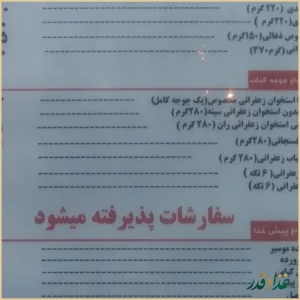 دی (۲۲۰ گرم)
ی(۲۲۰گرم)
وص ذغالی(۱۵۰گرم)
نی(گرم۳۷۰)
اع جوجه کباب
استخوان زعفرانی مخصوص(یک جوجه کامل)
دون استخوان زعفرانی سینه(۲۸۰گرم)
بی استخوان زعفرانی ران (۲۸۰ گرم)
سنجانی(۲۸۰گرم)
اب زعفرانی(۲۸۰ گرم)
فرانی (۶ تکه)
فرانی (۶ تکه)
سفارشات پذیرفته میشود
اع پیش غذا
ده موسیر
ورده